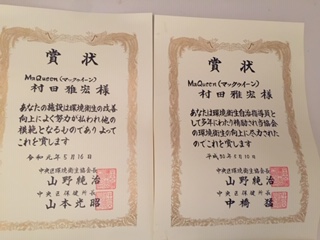 賞状
MaQueen(マックウイーン)
村田雅宏様
あなたの施設は環境衛生の改善
向上によく努力が払われ他の
模範となるものでありよって
これを賞します
令和元年5月16日
中央区環境衛生協会長
山野純治
中央区保健所長
山本光昭
賞状
MaQueen(マックウイーン)
村田雅宏様
あなたは環境衛生自治指導員と
して多年にわたり積極的に当協会
の環境衛生の向上に尽力された
のでこれを賞します
平成30年5月10日
中央区環境衛生協会長
山野純治
中央区保健所長
中橋猛